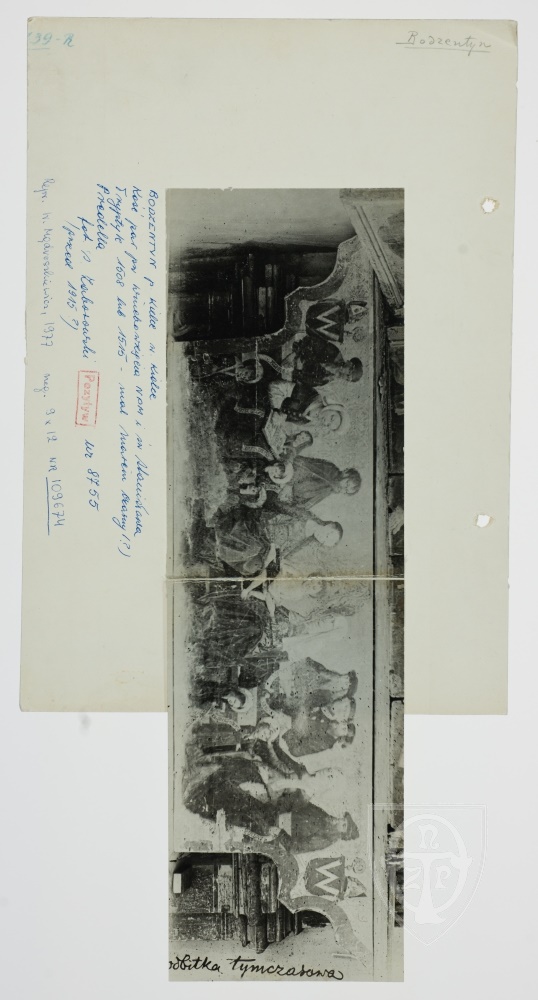 139-R
Bodzentyn
BODZENTYN p. Kielce w. Kielce
Kość. par. pw. Wniebowzięcia NPM i św. Stanisława
Tryptyk 1508 lub 1515 - mal. Marcin Czarny (?)
Predella
fot. S. Zaborowski Pozytyw nr 8755
(przed 1915 ?)
Repr. W. 1977 neg. 9 x 12 NR 109674
W
W
odbitka tymczasowa